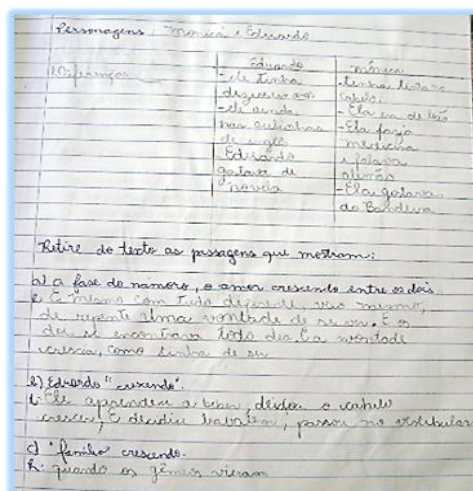 Personagens: Mônica e Eduardo
Diferenças
Eduardo
- ele tinha
dezesseis anos
- ele ainda
nas aulinhas
de inglê
- Eduardo
gostava de
novela
Mônica
- tinha tinta no
cabelo
- Ela era de leão
- Ela fazia
medicina
e falava
alemão
- Ela gostava
do Bandeira
Retire do texto as passagens que mostram:
a) a fase do namoro, o amor crescendo entre os dois
E mesmo com tudo diferente, veio mesmo,
de repente uma vontade de se ver. E os
dois se encontrava todo dia. E a vontade
crescia, como tinha de ser
b) Eduardo "crescendo".
Ele aprendeu a beber, deixou o cabelo
crescer, E decidiu trabalhar, passou no vestibular
c) "família" crescendo.
R: quando os gêmeos vieram